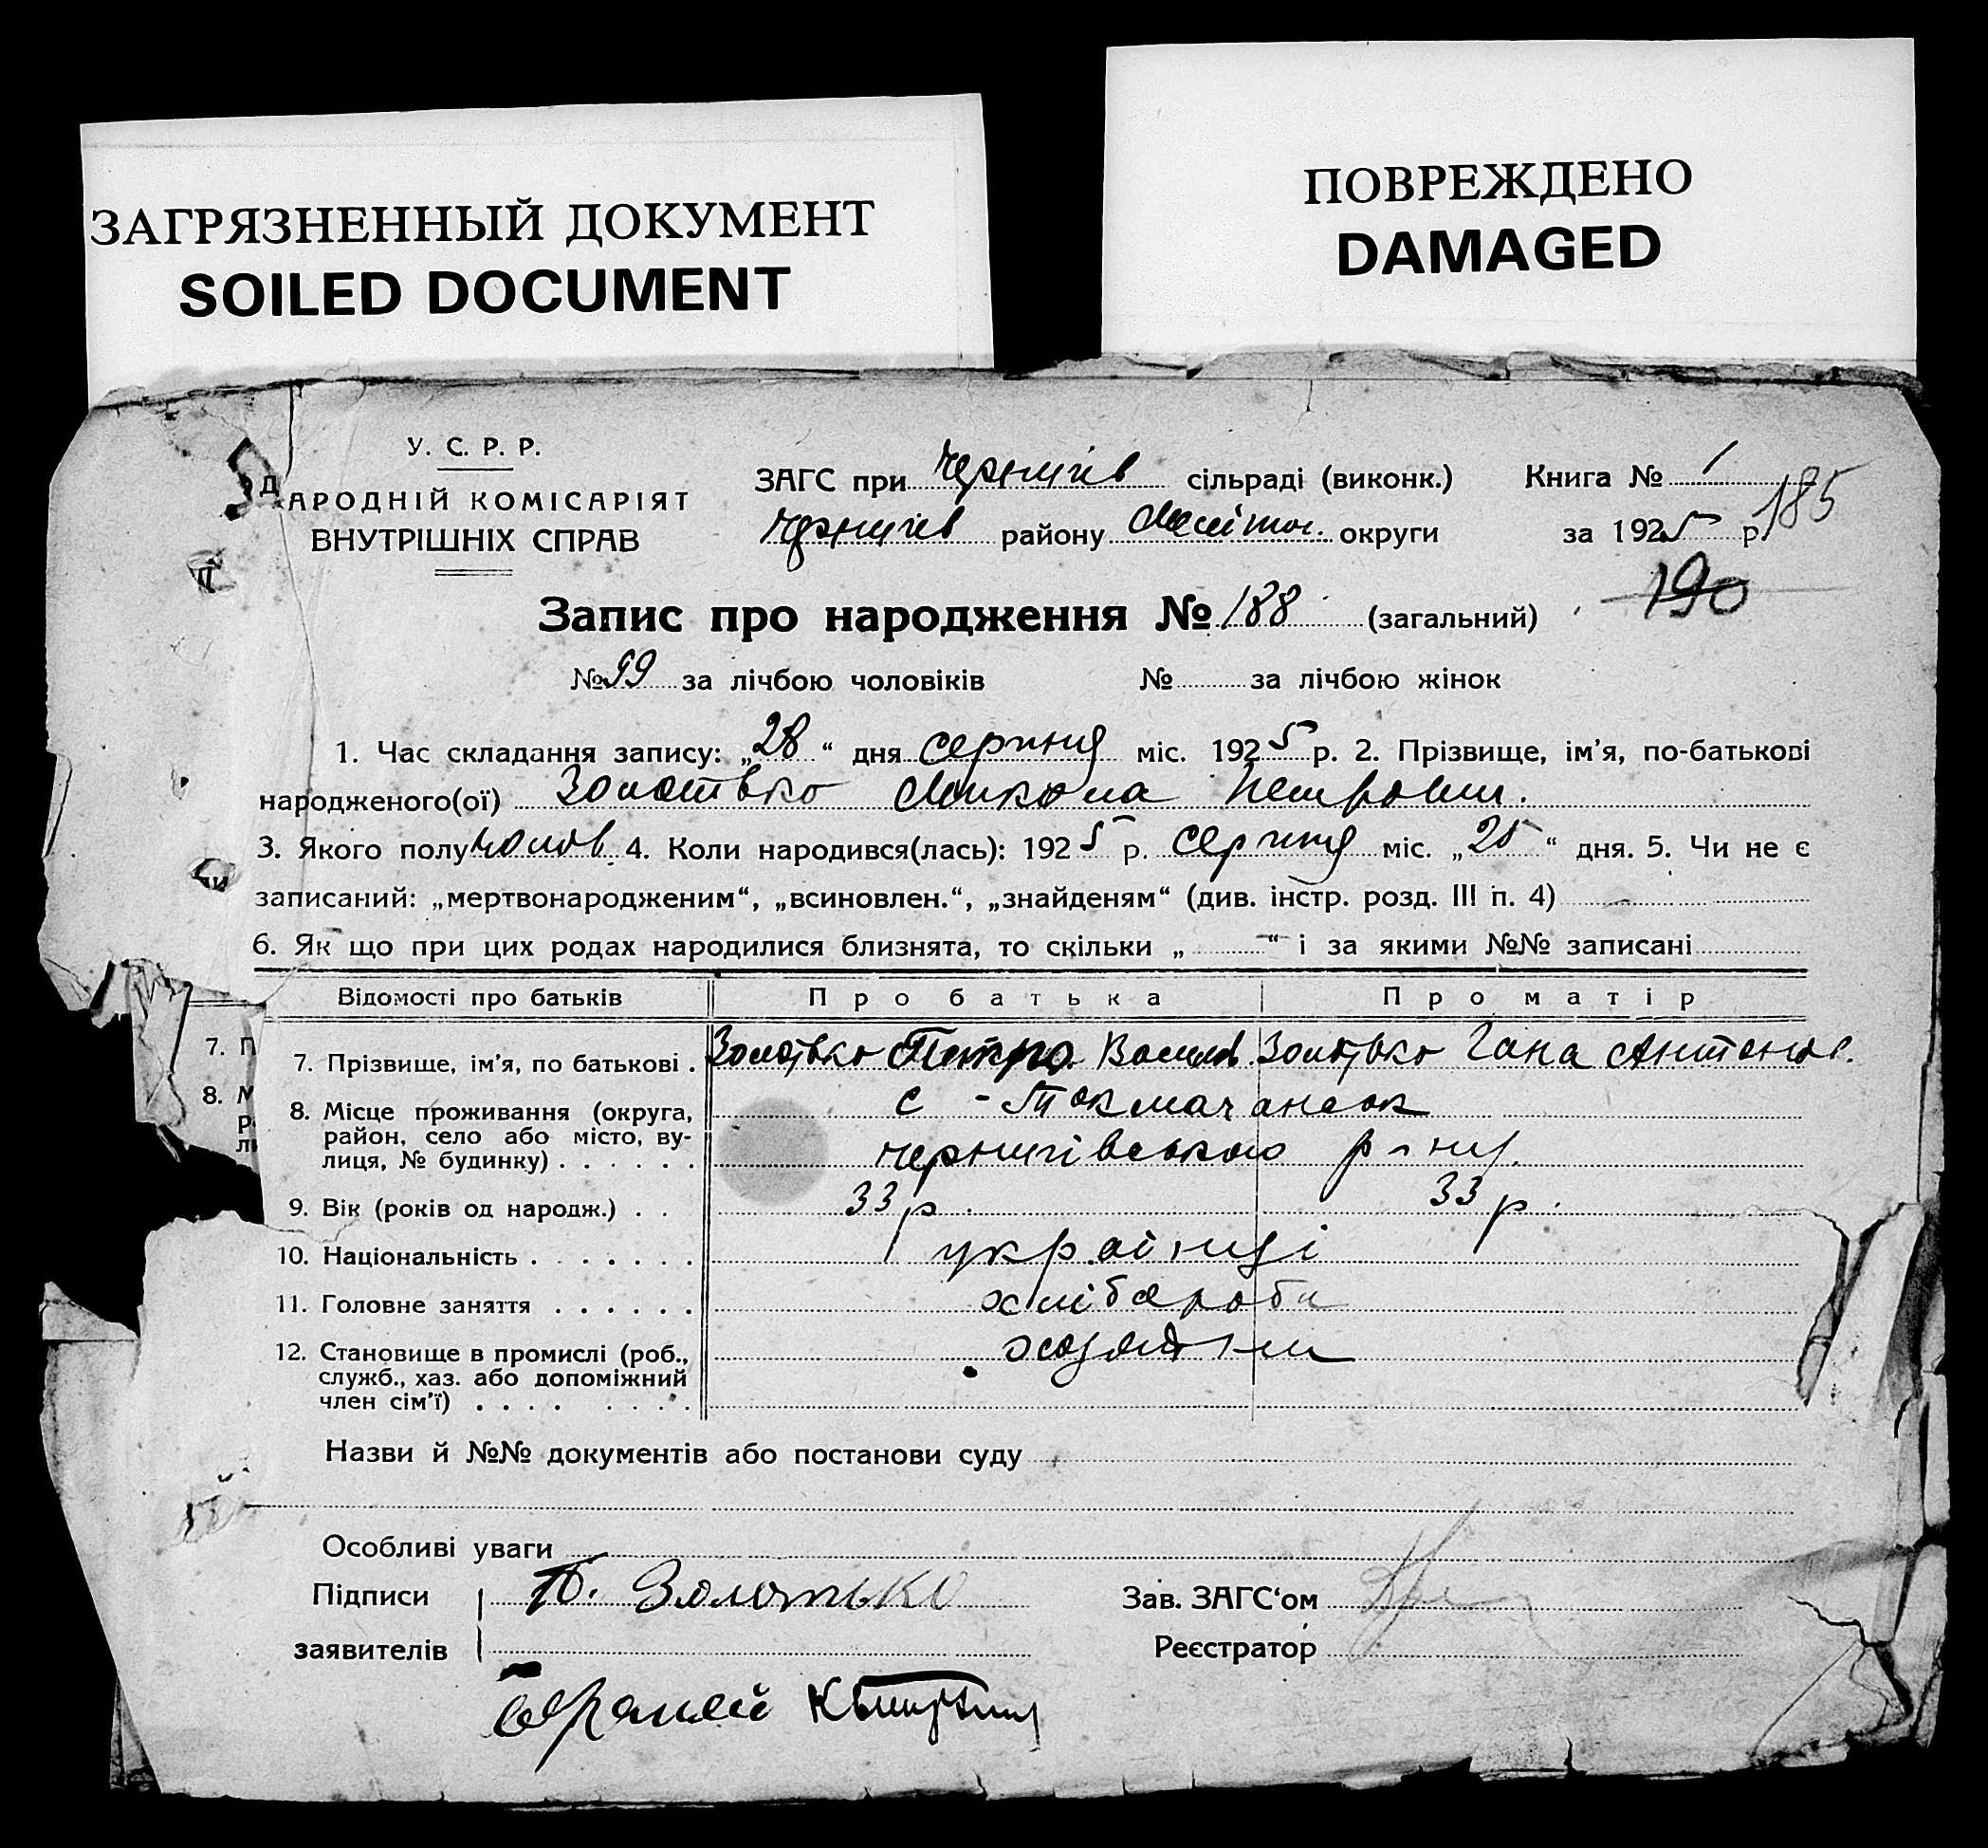 ЗАГРЯЗНЕННЫЙ ДОКУМЕНТ
SOILED DOCUMENT
ПОВРЕЖДЕНО
DAMAGED
У. С. Р. Р.
АРОДНІЙ КОМІСАРІЯТ
ВНУТРІШНІХ СПРАВ
ЗАГС при Чернигів сільраді (виконк.) Книга № 1
Чернигів району Меліт. округи за 1925 р. 185
190
Запис про народження № 188 (загальний)
№ 99 за лічбою чоловіків № за лічбою жінок
1. Час складання запису: „28“ дня серпня міс. 1925 р. 2. Прізвище, ім'я, по-батькові
народженого(ої) Золотько Микола Петрович.
3. Якого полу чолов. 4. Коли народився(лась): 1925 р. серпня міс. „25“ дня. 5. Чи не є
записаний: „мертвонародженим“, „всиновлен.“, „знайденям“ (див. інстр. розд. III п. 4)
6. Як що при цих родах народилися близнята, то скільки „ “ і за якими №№ записані
Відомості про батьків Про батька Про матір
7. Прізвище, ім'я, по батькові . Золотько Петро Васильов. Золотько Гана Антонов.
8. Місце проживання (округа, с - Токмачанськ
район, село або місто, ву- чернигівського р-ну.
лиця, № будинку) . . . . . .
9. Вік (років од народж.) . . 33 р. 33 р.
10. Національність . . . . . . . українці
11. Головне заняття . . . . . . хлібороби
12. Становище в промислі (роб.,
служб., хаз. або допоміжний
член сім'ї) . . . . . . . .
Назви й №№ документів або постанови суду
Особливі уваги
Підписи П. Золотько Зав. ЗАГС'ом
заявителів Реєстратор